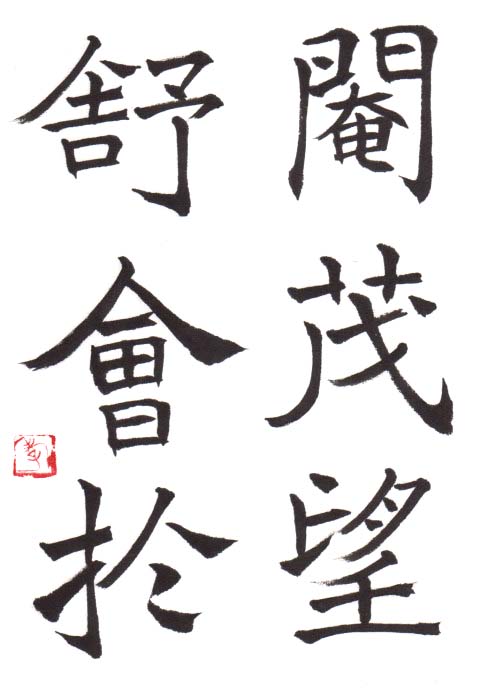 閹茂望
舒會於